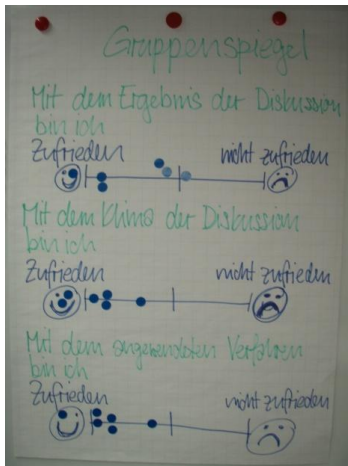 Gruppenspiegel
Mit dem Ergebnis der Diskussion
bin ich
Zufrieden nicht zufrieden
Mit dem Klima der Diskussion
bin ich
Zufrieden nicht zufrieden
Mit dem angewendeten Verfahren
bin ich
Zufrieden nicht zufrieden